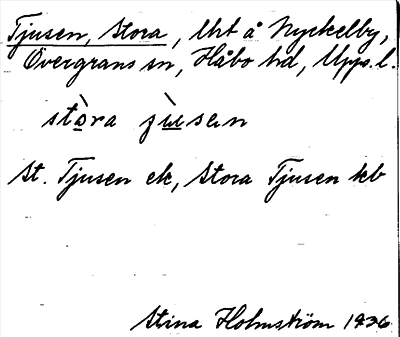 Tjusen, Stora, lht å Nyckelby,
Övergrans sn, Håbo hd, Upps. l.
stòra jùusen
St. Tjusen ek, Stora Tjusen kb
Stina Holmström 1936